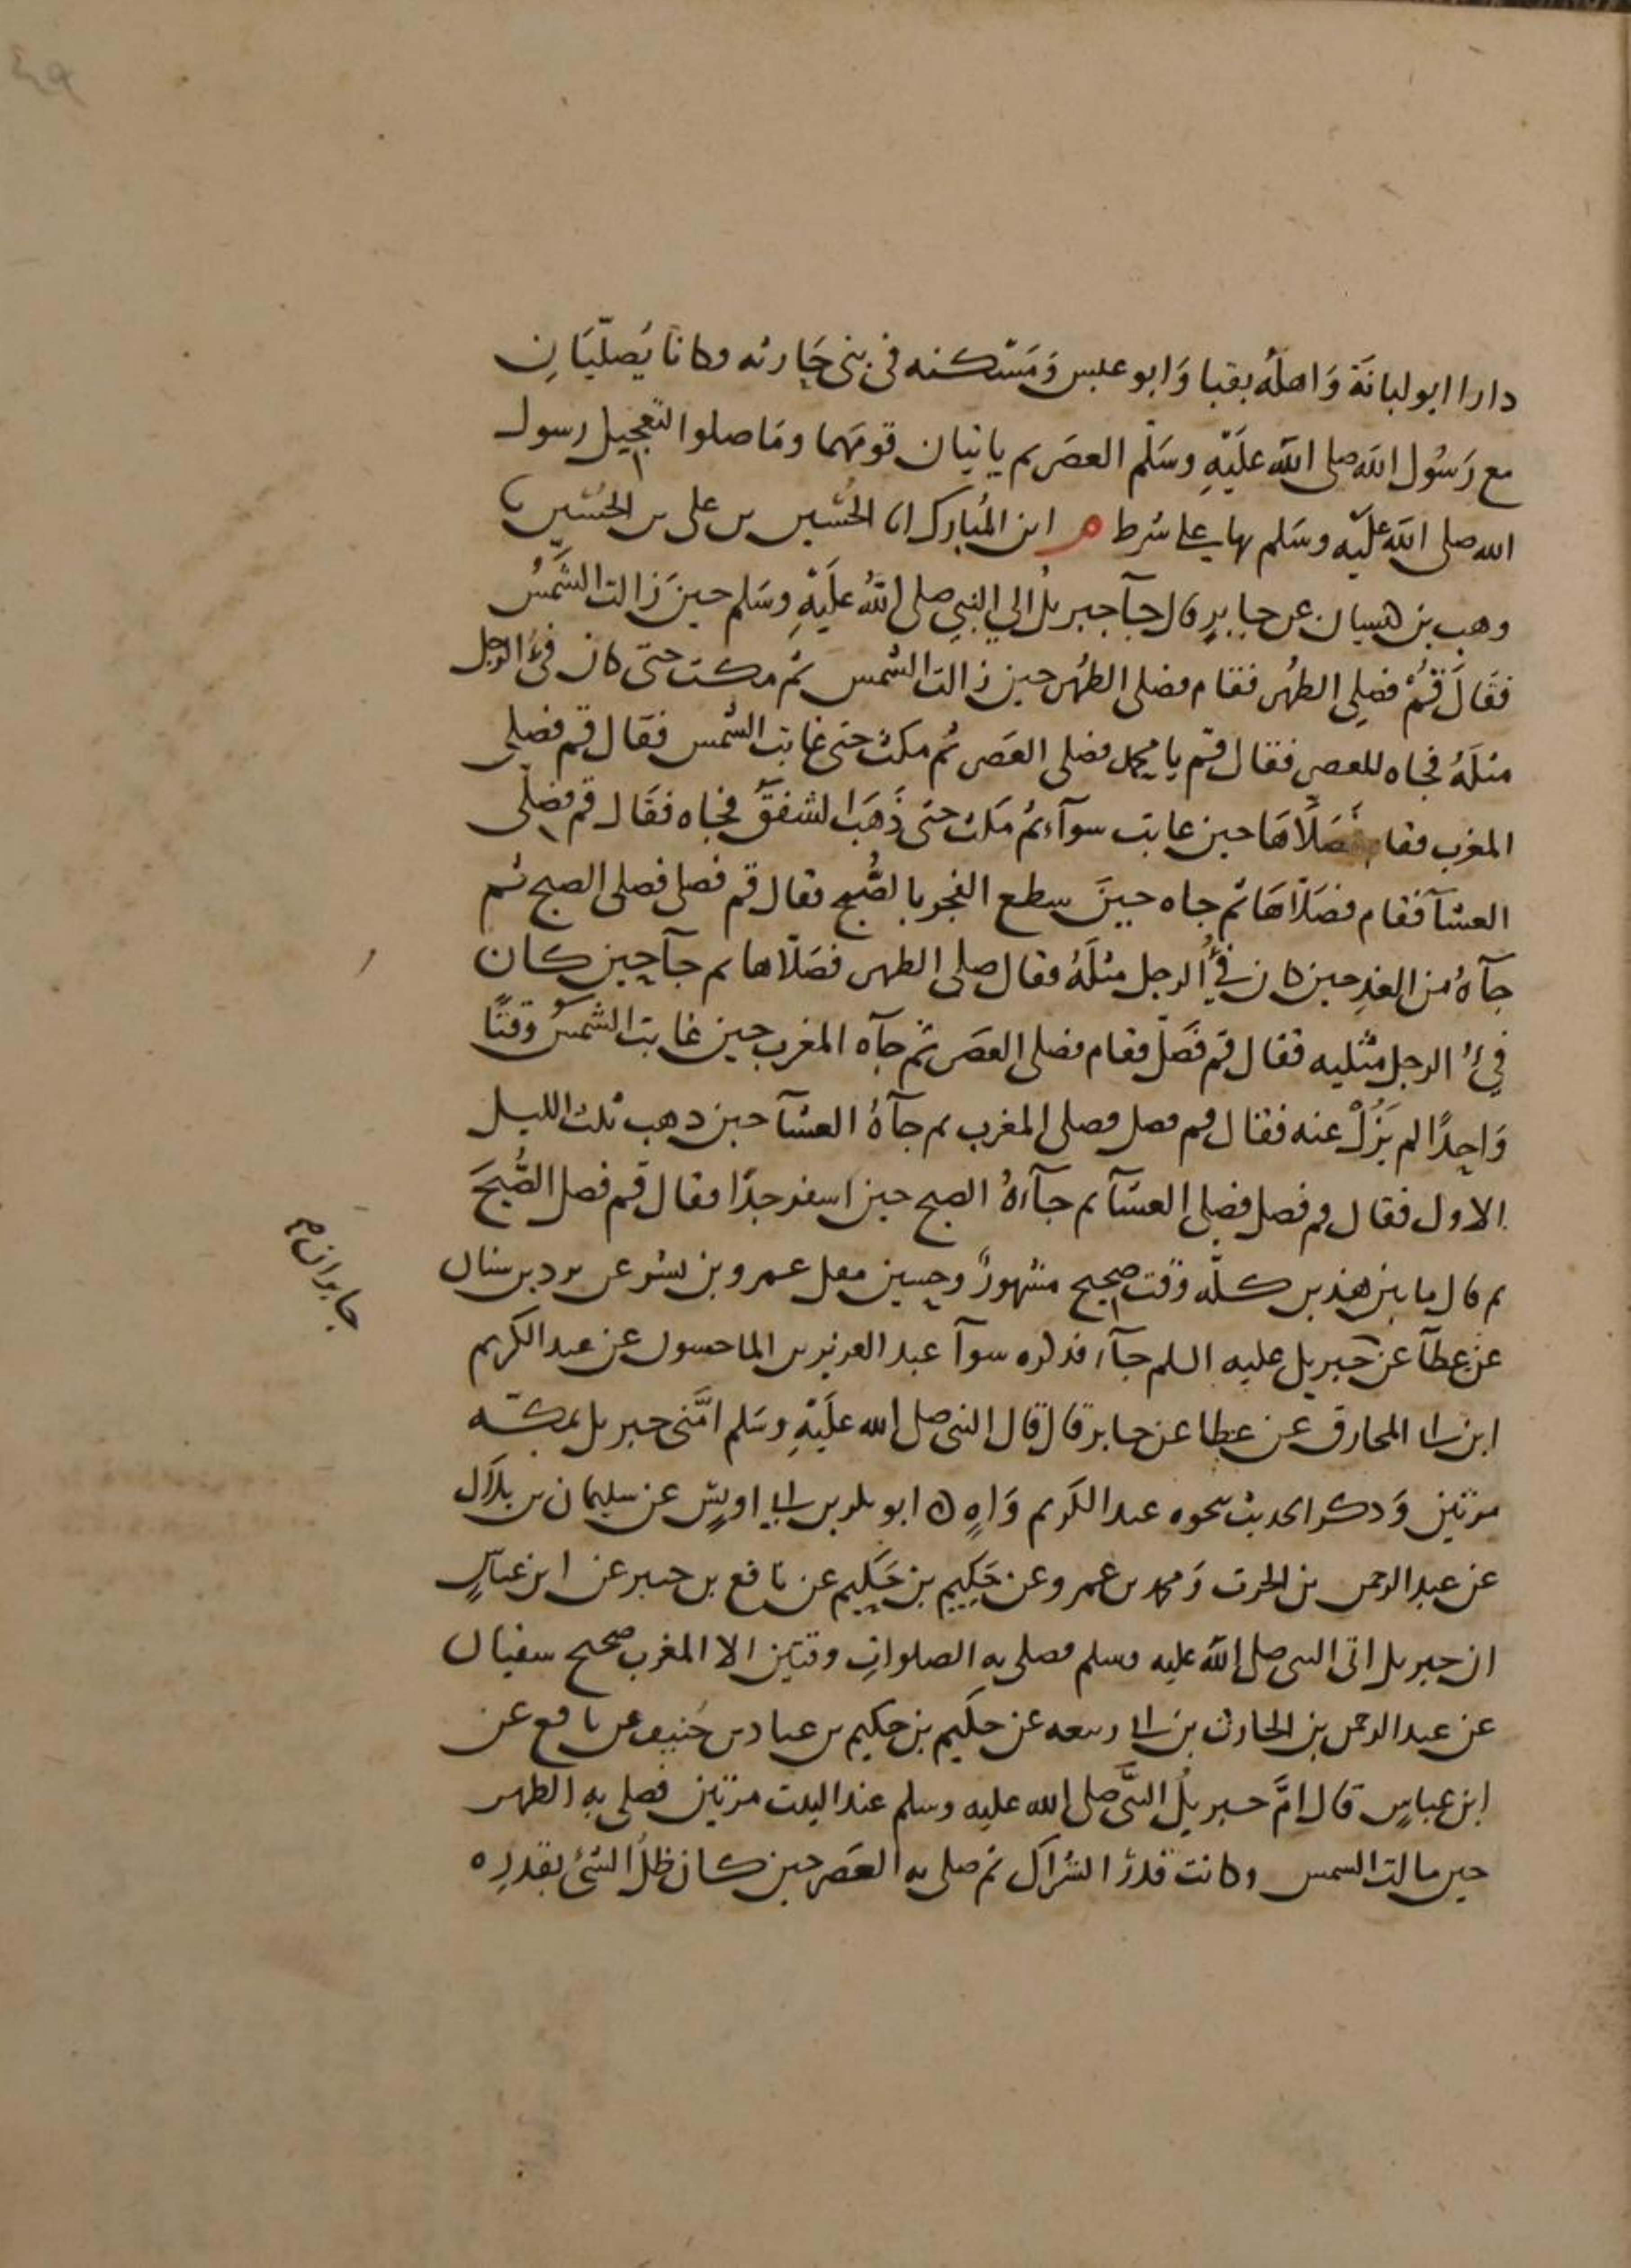 دارا ابو لبانة واهله بقبا وابو عبس ومسكنه في بني حارثه وكانا يصليان
مع رسول الله صلى الله عليه وسلم العصر ثم ياتيان قومهما وما صلوا لتعجيل رسول
الله صلى الله عليه وسلم بها على شرط م ابن المبارك انا الحسين بن علي بن الحسين نا
وهب بن كيسان عن جابر قال جآ جبريل الي النبي صلى الله عليه وسلم حين زالت الشمس
فقال قم فصلى الظهر فقام فصلى الظهر حين زالت الشمس ثم مكث حتى كان فئ الرجل
مثله فجاه للعصر فقال قم يا محمد فصلى العصر ثم مكث حتى غابت الشمس فقال قم فصلي
المغرب فقام فصلاها حين غابت سوآء ثم مكث حتى ذهب الشفق فجاه فقال قم فصلى
العشآ فقام فصلاها ثم جاه حين سطع الفجر بالصبح فقال قم فصل فصلى الصبح ثم
جآه من الغد حين كان فئ الرجل مثله فقال صلى الظهر فصلاها ثم جآ حين كان
فئ الرجل مثليه فقال قم فصل فقام فصلى العصر ثم جآه المغرب حين غابت الشمس وقتا
واحدا لم يزل عنه فقال قم فصل فصلى المغرب ثم جآه العشآ حين ذهب ثلث الليل
الاول فقال قم فصل فصلى العشآ ثم جآءه الصبح حين اسفر جدا فقال قم فصل الصبح
ثم قال ما بين هذين كله وقت صحيح مشهور وحسين مقل عمرو بن بشر عن برد بن سنان
عن عطآ عن جابر ان م
جبريل عليه السلم جآء فذكره سوآ عبد العزيز بن الماجشون عن عبد الكريم
ابن ابي المخارق عن عطا عن جابر قال قال النبي صلى الله عليه وسلم امني جبريل بمكة
مرتين وذكر الحديث بنحوه عبد الكريم واه ابو بكر بن ابي اويس عن سليمان بن بلال
عن عبد الرحمن بن الحرث ومحمد بن عمرو عن حكيم بن حكيم عن نافع بن جبير عن ابن عباس
ان جبريل اتى النبى صلى الله عليه وسلم فصلى به الصلوات وقتين الا المغرب صحيح سفيان
عن عبد الرحمن بن الحارث بن ابي ربيعه عن حكيم بن حكيم بن عباد بن حنيف عن نافع عن
ابن عباس قال ام جبريل النبي صلى الله عليه وسلم عند البيت مرتين فصلى به الظهر
حين مالت الشمس وكانت قدر الشراك ثم صلى به العصر حين كان ظل الشئ بقدره